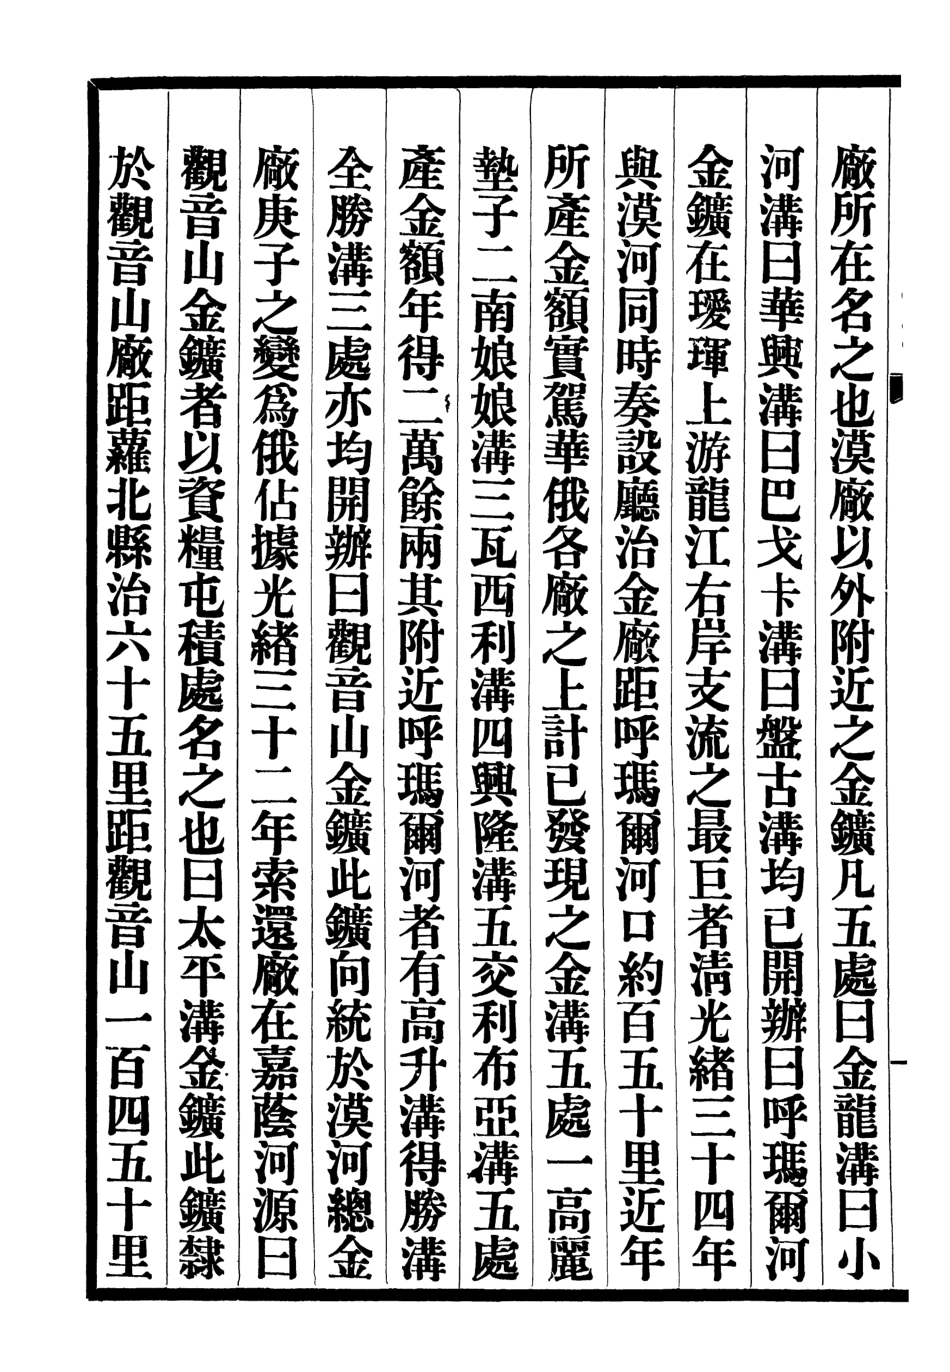 廠所在名之也漠廠以外附近之金鑛凡五處曰金龍溝曰小
河溝曰華興溝曰巴戈卡溝曰盤古溝均已開辦曰呼瑪爾河
金鑛在璦琿上游龍江右岸支流之最巨者淸光緒三十四年
與漠河同時奏設廳治金廠距呼瑪爾河口約百五十里近年
所產金額實駕華俄各廠之上計已發現之金溝五處一高麗
墊子二南娘娘溝三瓦西利溝四興隆溝五交利布亞溝五處
產金額年得二萬餘兩其附近呼瑪爾河者有高升溝得勝溝
全勝溝三處亦均開辦曰觀音山金鑛此鑛向統於漠河總金
廠庚子之變爲俄佔據光緒三十二年索還廠在嘉蔭河源曰
觀音山金鑛者以資糧屯積處名之也曰太平溝金鑛此鑛隸
於觀音山廠距蘿北縣治六十五里距觀音山一百四五十里